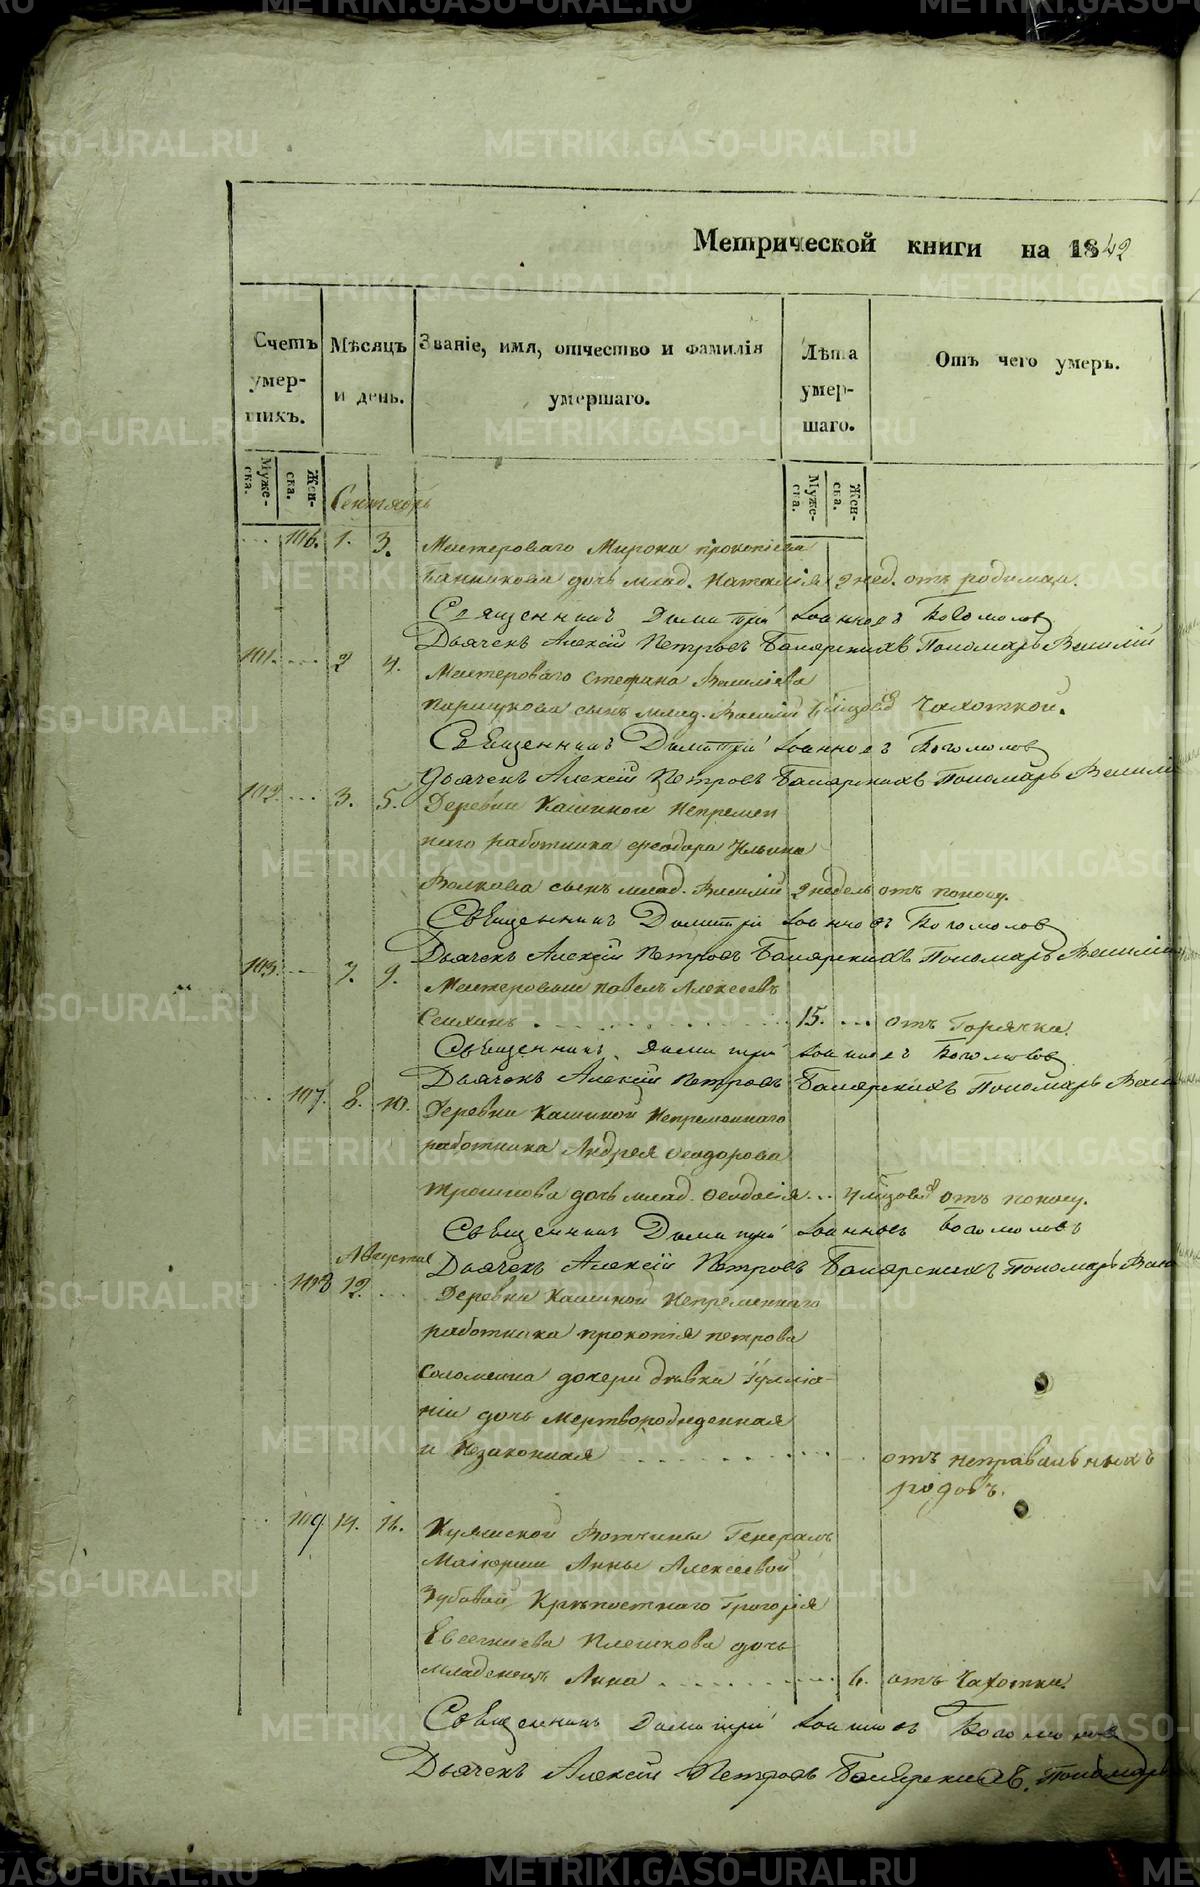 Метрической книги на 1842
Счетъ умер- шихъ.
Мѣсяцъ и день.
Званіе, имя, отчество и фамилія умершаго.
Лѣта умер- шаго.
Отъ чего умеръ.
Муже- ска.
Жен- ска.
Муже- ска.
Жен- ска.
Сентябрь
106. 1. 3. Мастероваго Мирона Прокопіева
дочь млад. Наталія 2 нед. отъ родимца.
Священникъ Димитрій Іоанновъ Богомолов
Дьячекъ Алексій Петровъ Пономарь Василій
101. 2 4. Мастероваго Стефана Василіева
сынъ млад. Василій Чахоткой.
Священникъ Димитрій Іоанновъ Богомолов
Дьячекъ Алексій Петровъ Пономарь
102. 3. 5. Деревни Кашиной Непремен
наго работника Феодора Ильина
Волкова сынъ млад. Василій 2 недель отъ поносу.
Священникъ Димитрій Іоанновъ Богомолов
Дьячекъ Алексій Петровъ Пономарь
103. 7. 9. Мастеровый Павелъ Алексеевъ
15. отъ Горячки.
Священникъ Димитрій Іоанновъ Богомолов
Дьячекъ Алексій Петровъ Пономарь
107. 8. 10. Деревни Кашиной Непременнаго
работника Андрея Феодорова
дочь млад. Феодосія отъ поносу.
Священникъ Димитрій Іоанновъ Богомоловъ
Августа
Дьячекъ Алексій Петровъ Пономарь
108 12. Деревни Кашиной Непременнаго
работника Прокопія Петрова
Соломеина дочери девки Іулліа-
ніи дочь мертворожденная
и Незаконная
отъ неправильныхъ
родовъ.
109 14. 16. Вотчины Генералъ
Маіорши Анны Алексеевой
Зубовой Крѣпостнаго Григорія
Плешкова дочь
младенецъ Анна 6. отъ Чахотки.
Священникъ Димитрій Іоанновъ Богомолов
Дьячекъ Алексій Петровъ Пономарь
METRIKI.GASO-URAL.RU